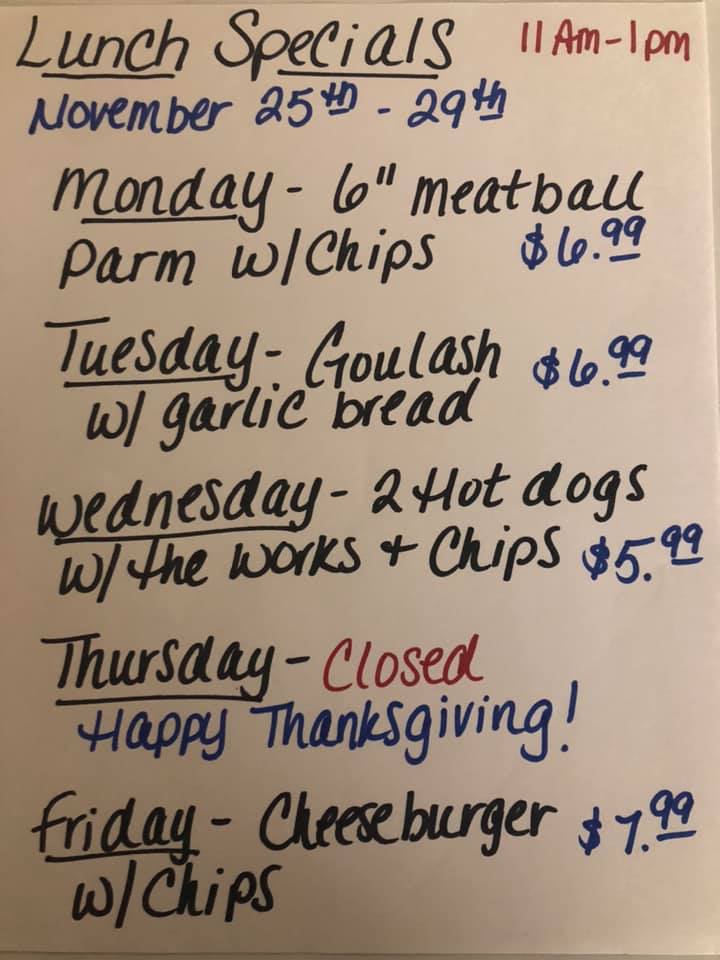 Lunch Specials 11Am-1pm
November 25th - 29th
Monday - 6" meatball
Parm w/Chips $6.99
Tuesday - Goulash $6.99
w/ garlic bread
Wednesday - 2 Hot dogs
w/ the works + Chips $5.99
Thursday - Closed
Happy Thanksgiving!
Friday - Cheeseburger $7.99
w/Chips